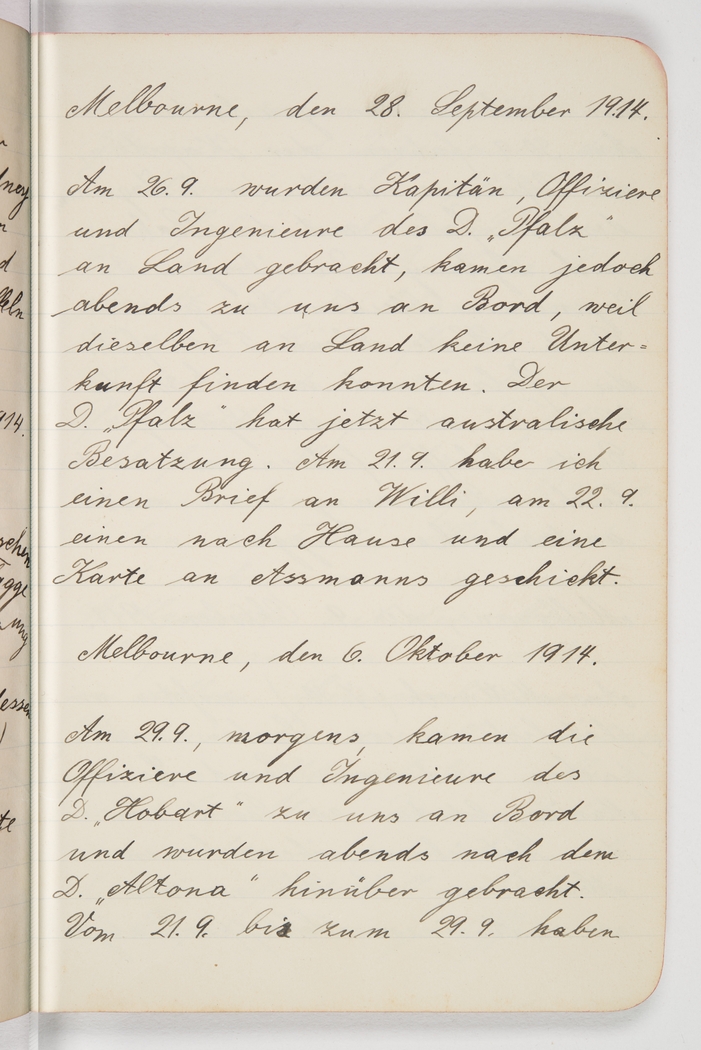 Melbourne, den 28. September 1914.
Am 26. 9. wurden Kapitän, Offiziere
und Ingenieure des D. „Pfalz"
an Land gebracht, kamen jedoch
abends zu uns an Bord, weil
dieselben an Land keine Unter=
kunft finden konnten. Der
D. „Pfalz" hat jetzt australische
Besatzung. Am 21. 9. habe ich
einen Brief an Willi, am 22. 9.
einen nach Hause und eine
Karte an Assmanns geschickt.
Melbourne, den 6. Oktober 1914.
Am 29. 9., morgens, kamen die
Offiziere und Ingenieure des
D. „Hobart" zu uns an Bord
und wurden abends nach dem
D. „Altona" hinüber gebracht.
Vom 21. 9. bis zum 29. 9. haben